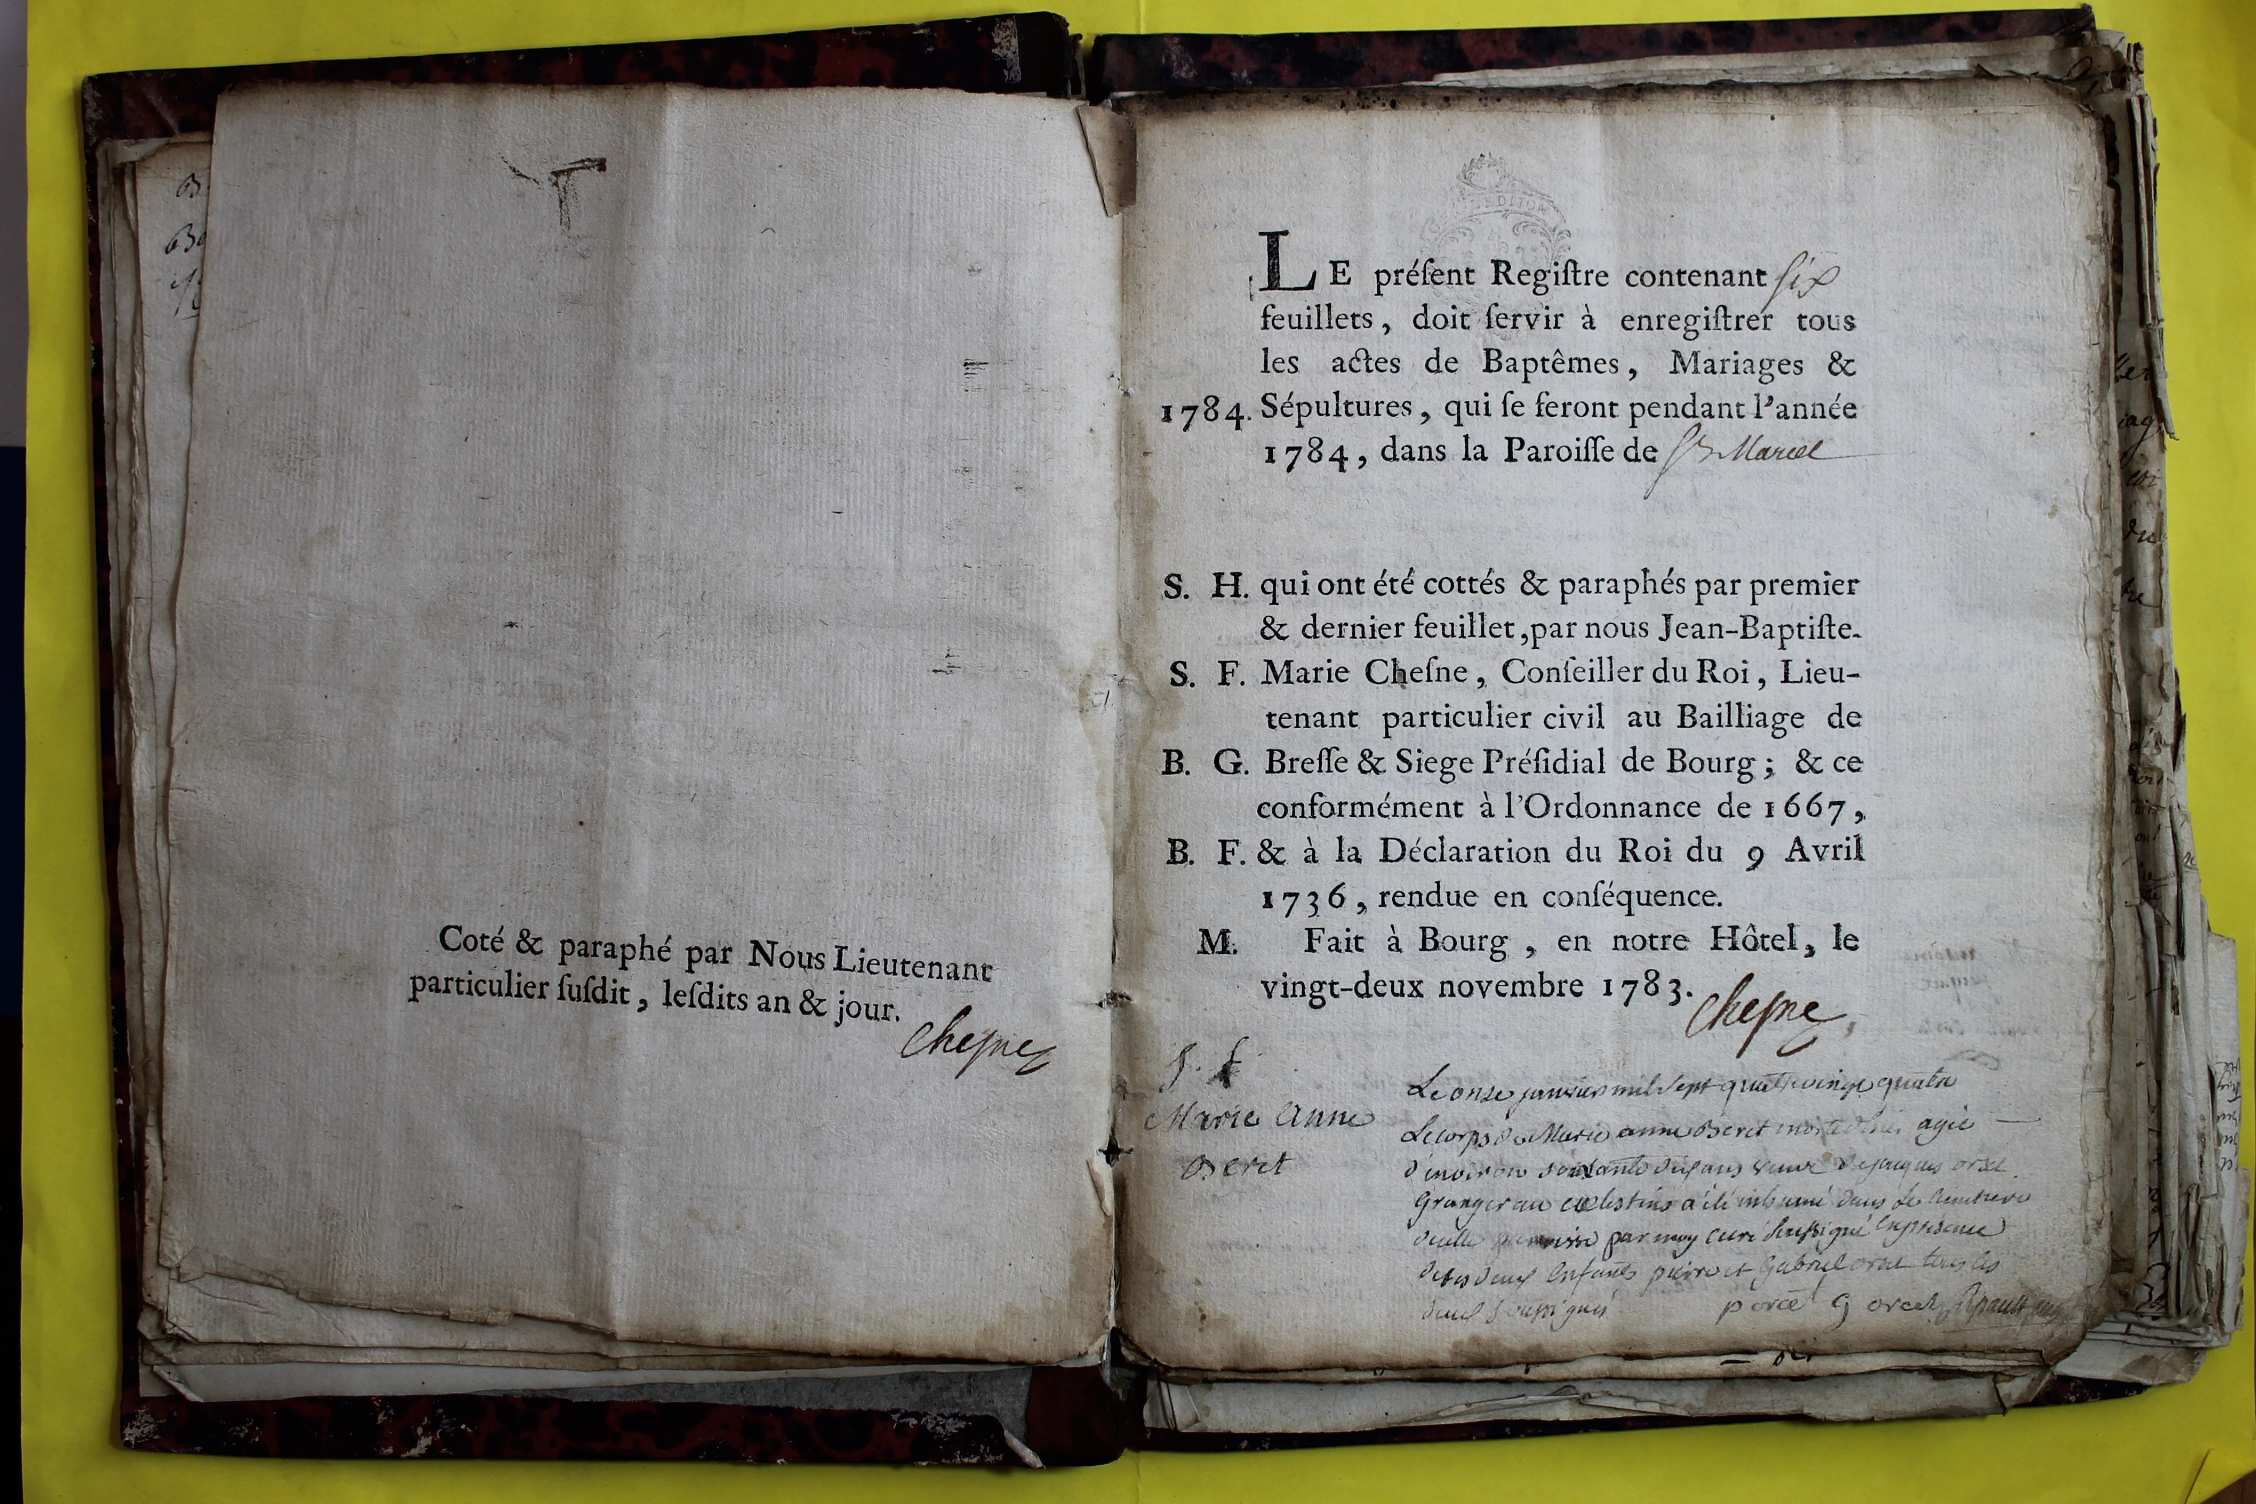 Coté & paraphé par Nous Lieutenant
particulier ſuſdit, leſdits an & jour.
Cheſne
LE préſent Regiſtre contenant ſix
feuillets, doit ſervir à enregiſtrer tous
les actes de Baptêmes, Mariages &
1784. Sépultures, qui ſe feront pendant l'année
1784, dans la Paroiſſe de St Marcel
S. H. qui ont été cottés & paraphés par premier
& dernier feuillet, par nous Jean-Baptiſte-
S. F. Marie Cheſne, Conſeiller du Roi, Lieu-
tenant particulier civil au Bailliage de
B. G. Breſſe & Siege Préſidial de Bourg; & ce
conformément à l'Ordonnance de 1667,
B. F. & à la Déclaration du Roi du 9 Avril
1736, rendue en conſéquence.
M. Fait à Bourg, en notre Hôtel, le
vingt-deux novembre 1783.
Cheſne
S. f
Marie Anne
Beret
Le onze janvier mil sept quatrevingt quatre
Le corps de Marie anne Beret morte hier agée
d'environ soixante dix ans veuve de jaques orset
Granger au celestins a été inhumé dans le cimetiere
de cette paroisse par moy curé soussigné en presence
de ses deux enfants pierre et Gabriel orset tous les
deux soussignés
p orcet g orcet